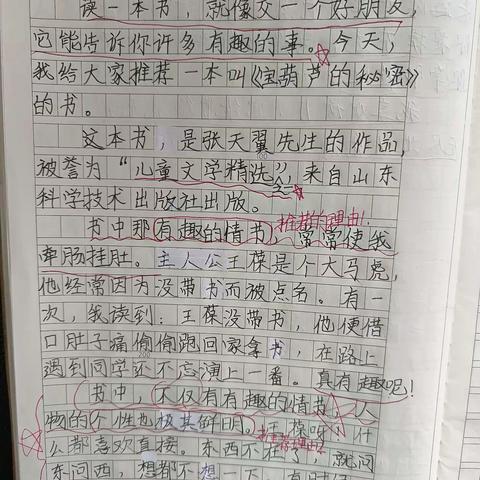 读一本书，就像交一个好朋友，
它能告诉你许多有趣的事。今天，
我给大家推荐一本叫《宝葫芦的秘密》
的书。
这本书，是张天翼先生的作品，
被誉为“儿童文学精选”，来自山东
科学技术出版社出版。
推荐的理由：
书中那有趣的情书，常常使我
牵肠挂肚。主人公王葆是个大马虎，
他经常因为没带书而被点名。有一
次，我读到：王葆没带书，他便借
口肚子痛偷偷跑回家拿书，在路上
200
遇到同学还不忘演上一番。真有趣呢！
书中，不仅有有趣的情书，人
物的个性也极其鲜明。王葆呀，什
么都喜欢直接。东西不在了，就问
东问西，想都不想一下，有时候